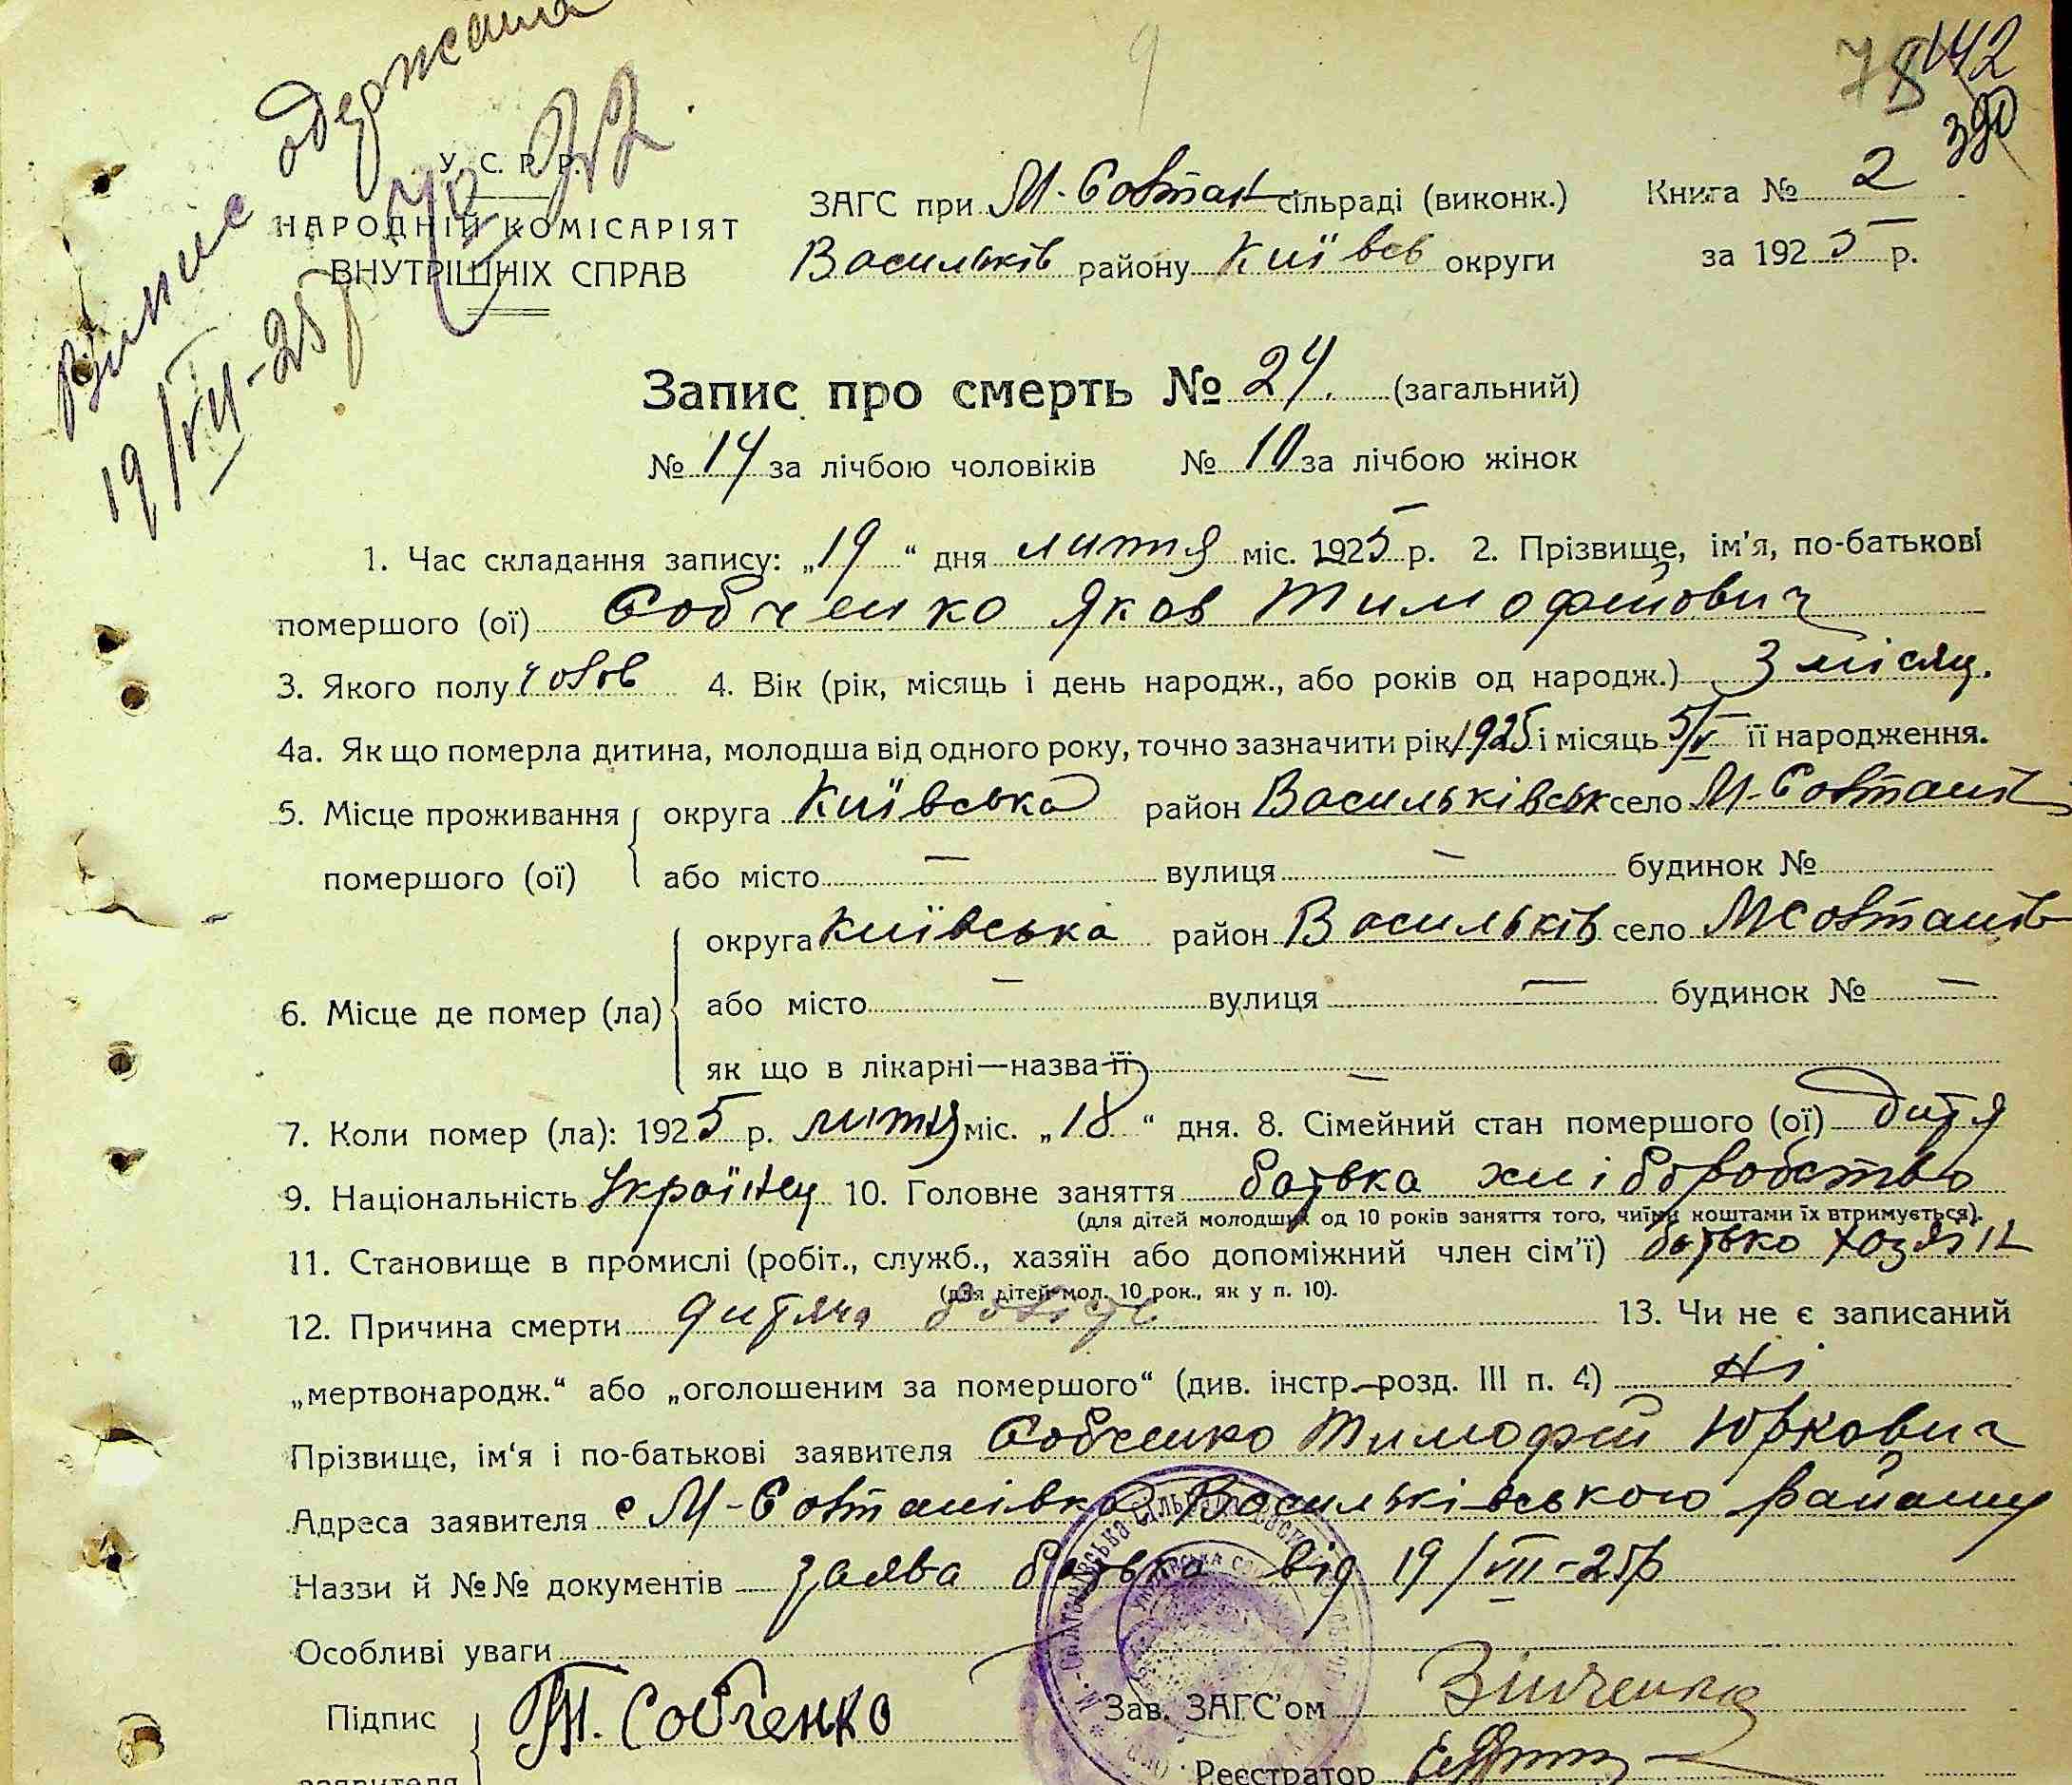 Випис одержала
19/VII-25р
9
78 142
390
У. С. Р. Р.
НАРОДНІЙ КОМІСАРІЯТ
ВНУТРІШНІХ СПРАВ
ЗАГС при М-Совтан сільраді (виконк.) Книга № 2
Васильків району Київсь округи за 1925 р.
Запис про смерть № 24. (загальний)
№ 14 за лічбою чоловіків № 10 за лічбою жінок
1. Час складання запису: „19“ дня липня міс. 1925 р. 2. Прізвище, ім'я, по-батькові
помершого (ої) Собченко Яков Тимофейович
3. Якого полу чолов 4. Вік (рік, місяць і день народж., або років од народж.) 3 місяц.
4а. Як що померла дитина, молодша від одного року, точно зазначити рік 1925 і місяць 5/V її народження.
5. Місце проживання помершого (ої) округа Київська район Васильківськ село М-Совтанів
або місто — вулиця — будинок №
6. Місце де помер (ла) округа Київська район Васильків село М Совтанів
або місто — вулиця — будинок № —
як що в лікарні—назва її —
7. Коли помер (ла): 1925 р. липня міс. „18“ дня. 8. Сімейний стан помершого (ої) дитя
9. Національність Українец 10. Головне заняття батька хліборобство
(для дітей молодших од 10 років заняття того, чиїми коштами їх втримується).
11. Становище в промислі (робіт., служб., хазяїн або допоміжний член сім'ї) батько хозяін
(для дітей мол. 10 рок., як у п. 10).
12. Причина смерти дитяча болість 13. Чи не є записаний
„мертвонародж.“ або „оголошеним за помершого“ (див. інстр.—розд. III п. 4) Ні
Прізвище, ім'я і по-батькові заявителя Собченко Тимофей Юркович
Адреса заявителя с М-Совтанівка Васильківського району
Назви й №№ документів заява батька від 19/VII-25р
Особливі уваги
Підпис заявителя Т. Собченко Зав. ЗАГС'ом Зінченко
Реєстратор